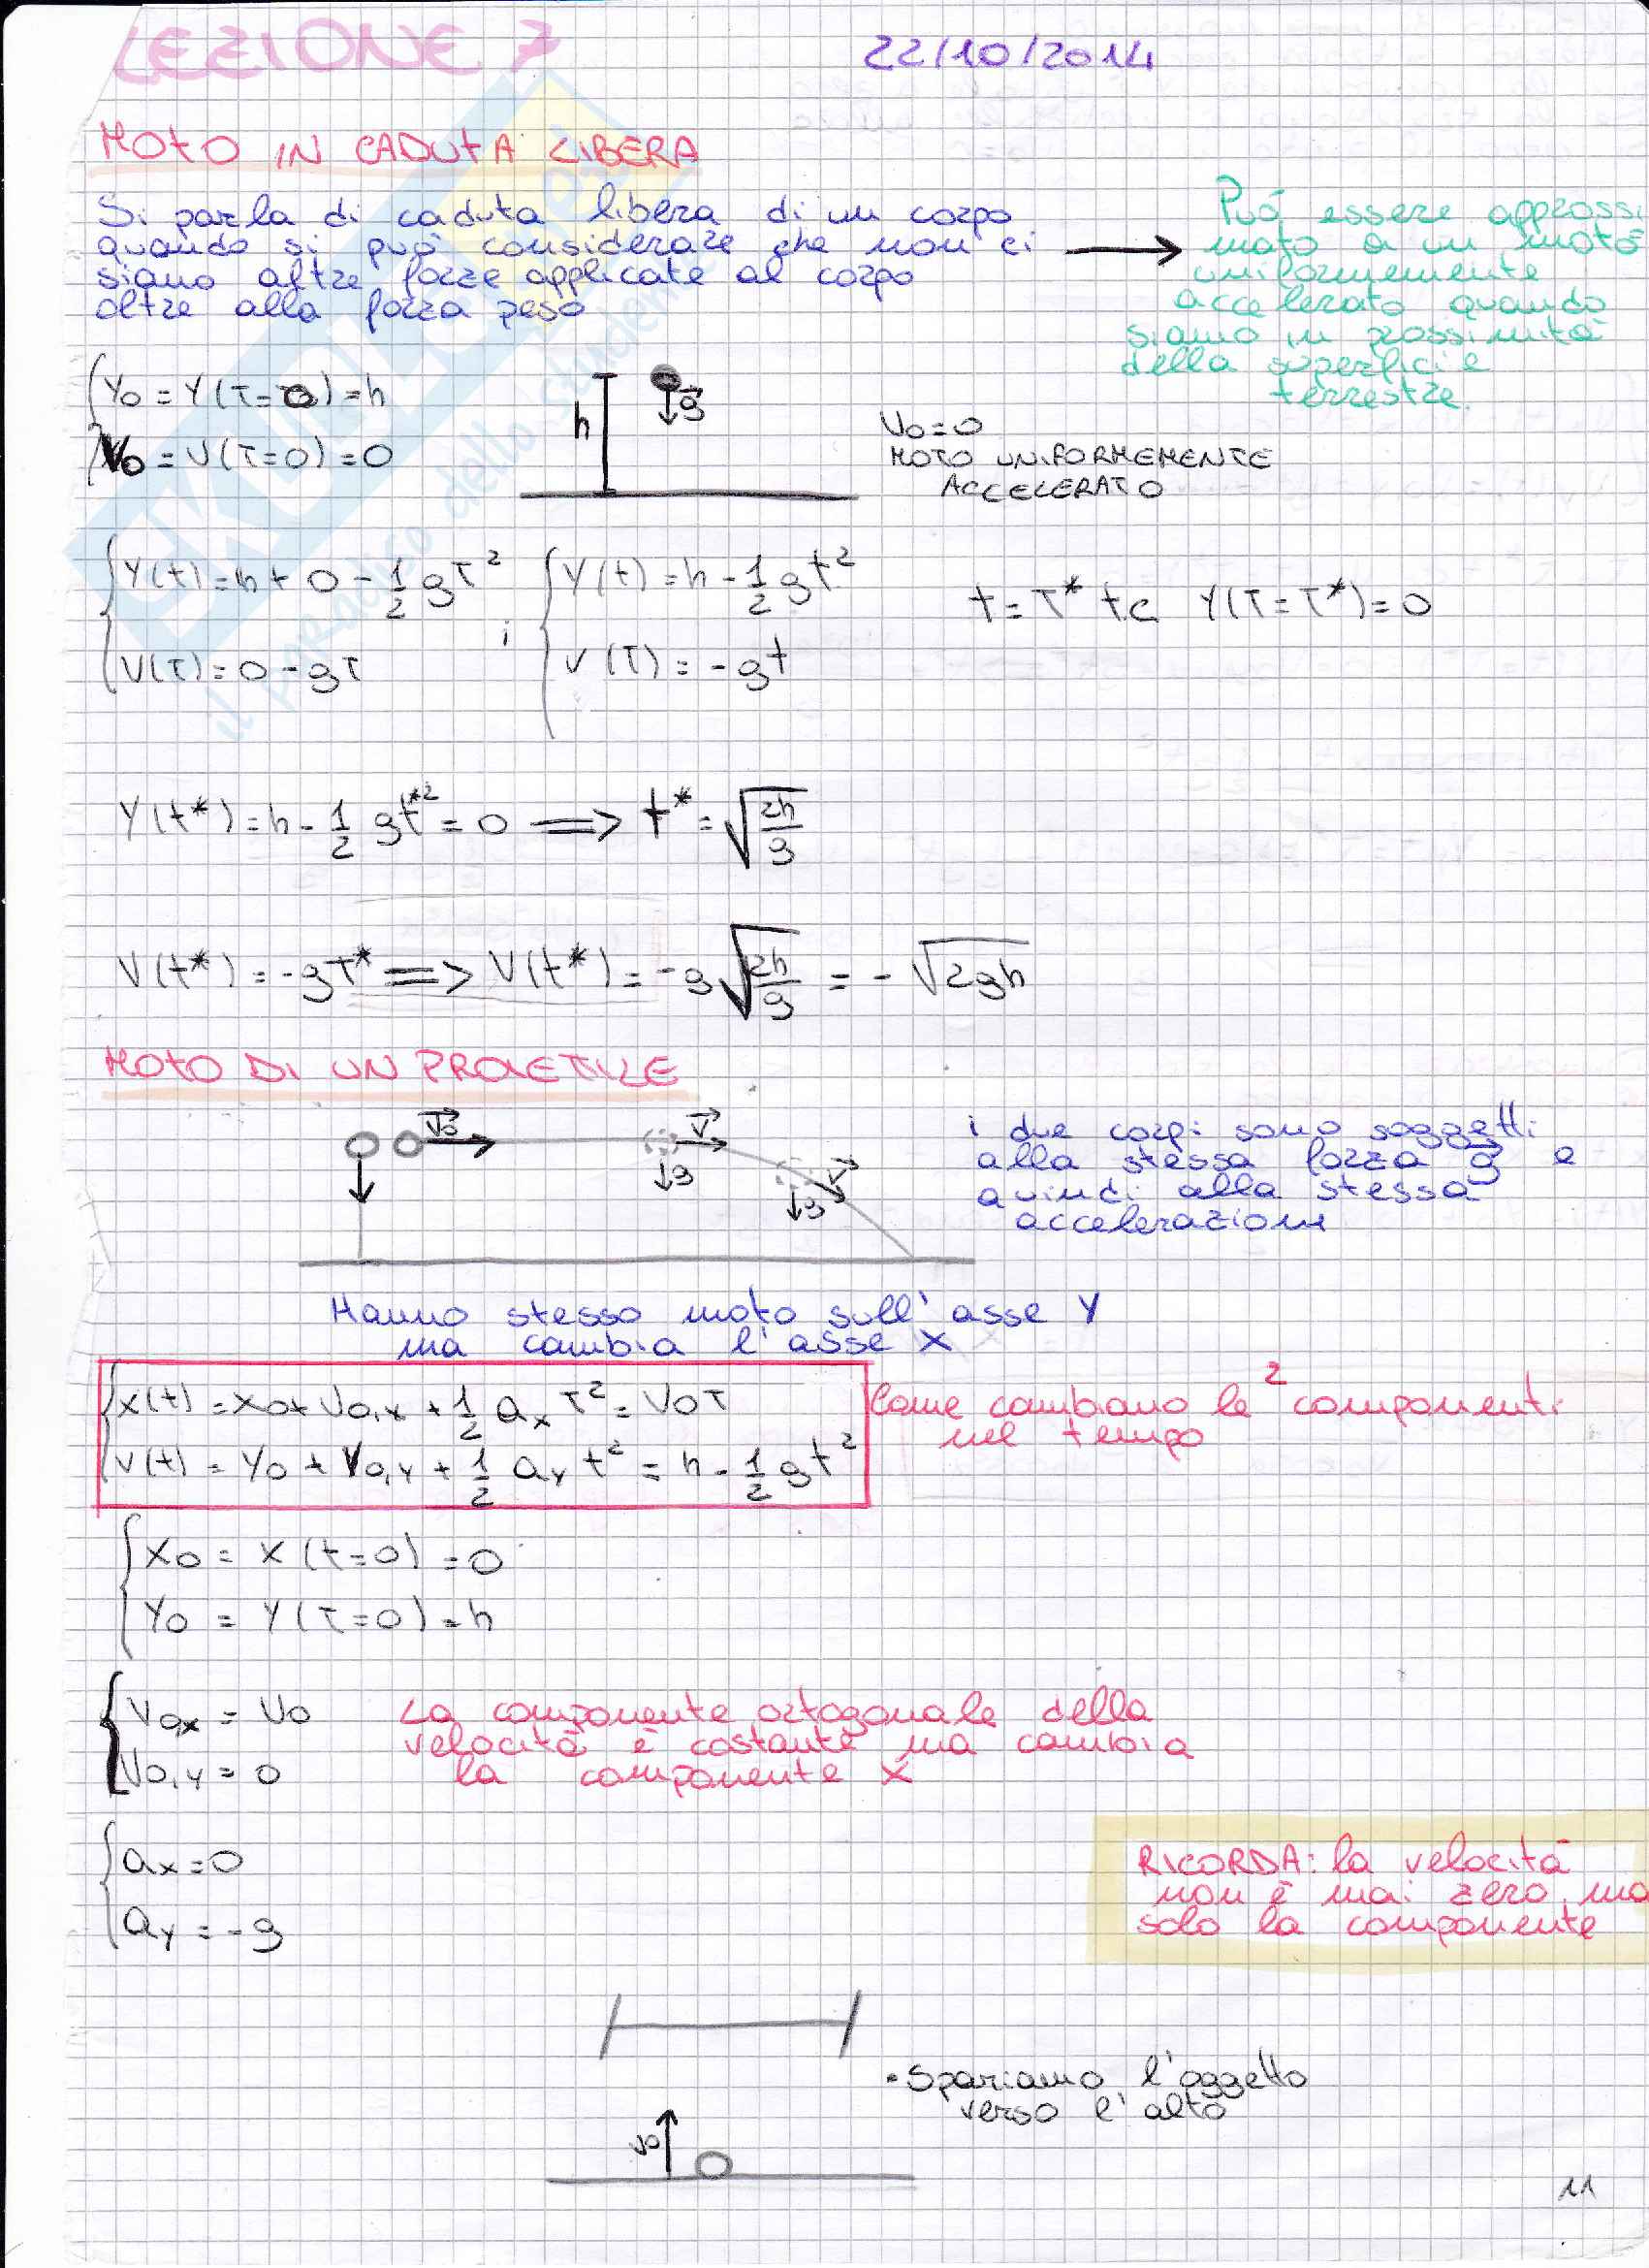 LEZIONE 7
22/10/2014
MOTO IN CADUTA LIBERA
Si parla di caduta libera di un corpo
quando si può considerare che non ci
siano altre forze applicate al corpo
oltre alla forza peso
Può essere approssi
mato a un moto
uniformemente
accelerato quando
siamo in prossimità
della superficie
terrestre.
Y0 = Y(T=0) = h
V0 = V(T=0) = 0
h
g
V0=0
MOTO UNIFORMEMENTE
ACCELERATO
Y(t) = h + 0 - 1/2 gT²
V(T) = 0 - gT
;
Y(t) = h - 1/2 gt²
V(T) = -gt
t = T* t.c. Y(T=T*) = 0
Y(t*) = h - 1/2 gt*² = 0 ⟹ t* = √(2h/g)
V(t*) = -gT* ⟹ V(t*) = -g√(2h/g) = -√2gh
MOTO DI UN PROIETTILE
V0
V
g
V
g
i due corpi sono soggetti
alla stessa forza g e
quindi alla stessa
accelerazione
Hanno stesso moto sull'asse Y
ma cambia l'asse X
x(t) = x0 + V0,x + 1/2 ax T² = V0T
V(t) = Y0 + V0,y + 1/2 ay t² = h - 1/2 gt²
Come cambiano le 2 componenti
nel tempo
X0 = X(t=0) = 0
Y0 = Y(T=0) = h
V0x = V0
V0,y = 0
La componente ortogonale della
velocità è costante ma cambia
la componente X
ax = 0
ay = -g
RICORDA: la velocità
non è mai zero, ma
solo la componente
• Spariamo l'oggetto
verso l'alto
V0
11
il paradiso dello studente